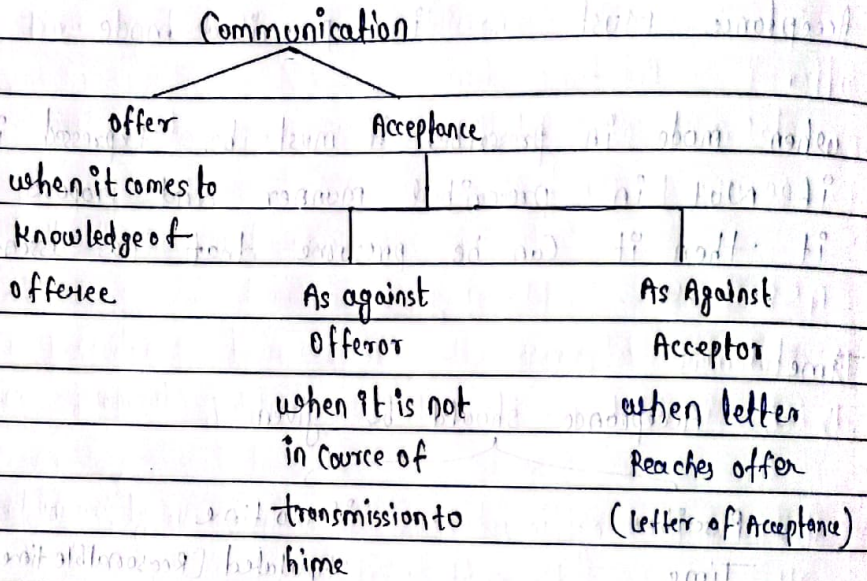 Communication
Offer
Acceptance
when it comes to
knowledge of
offeree
As against
Offeror
when it is not
in Cource of
transmission to
hime
As Against
Acceptor
when letter
Reaches offer
(Letter of Acceptance)